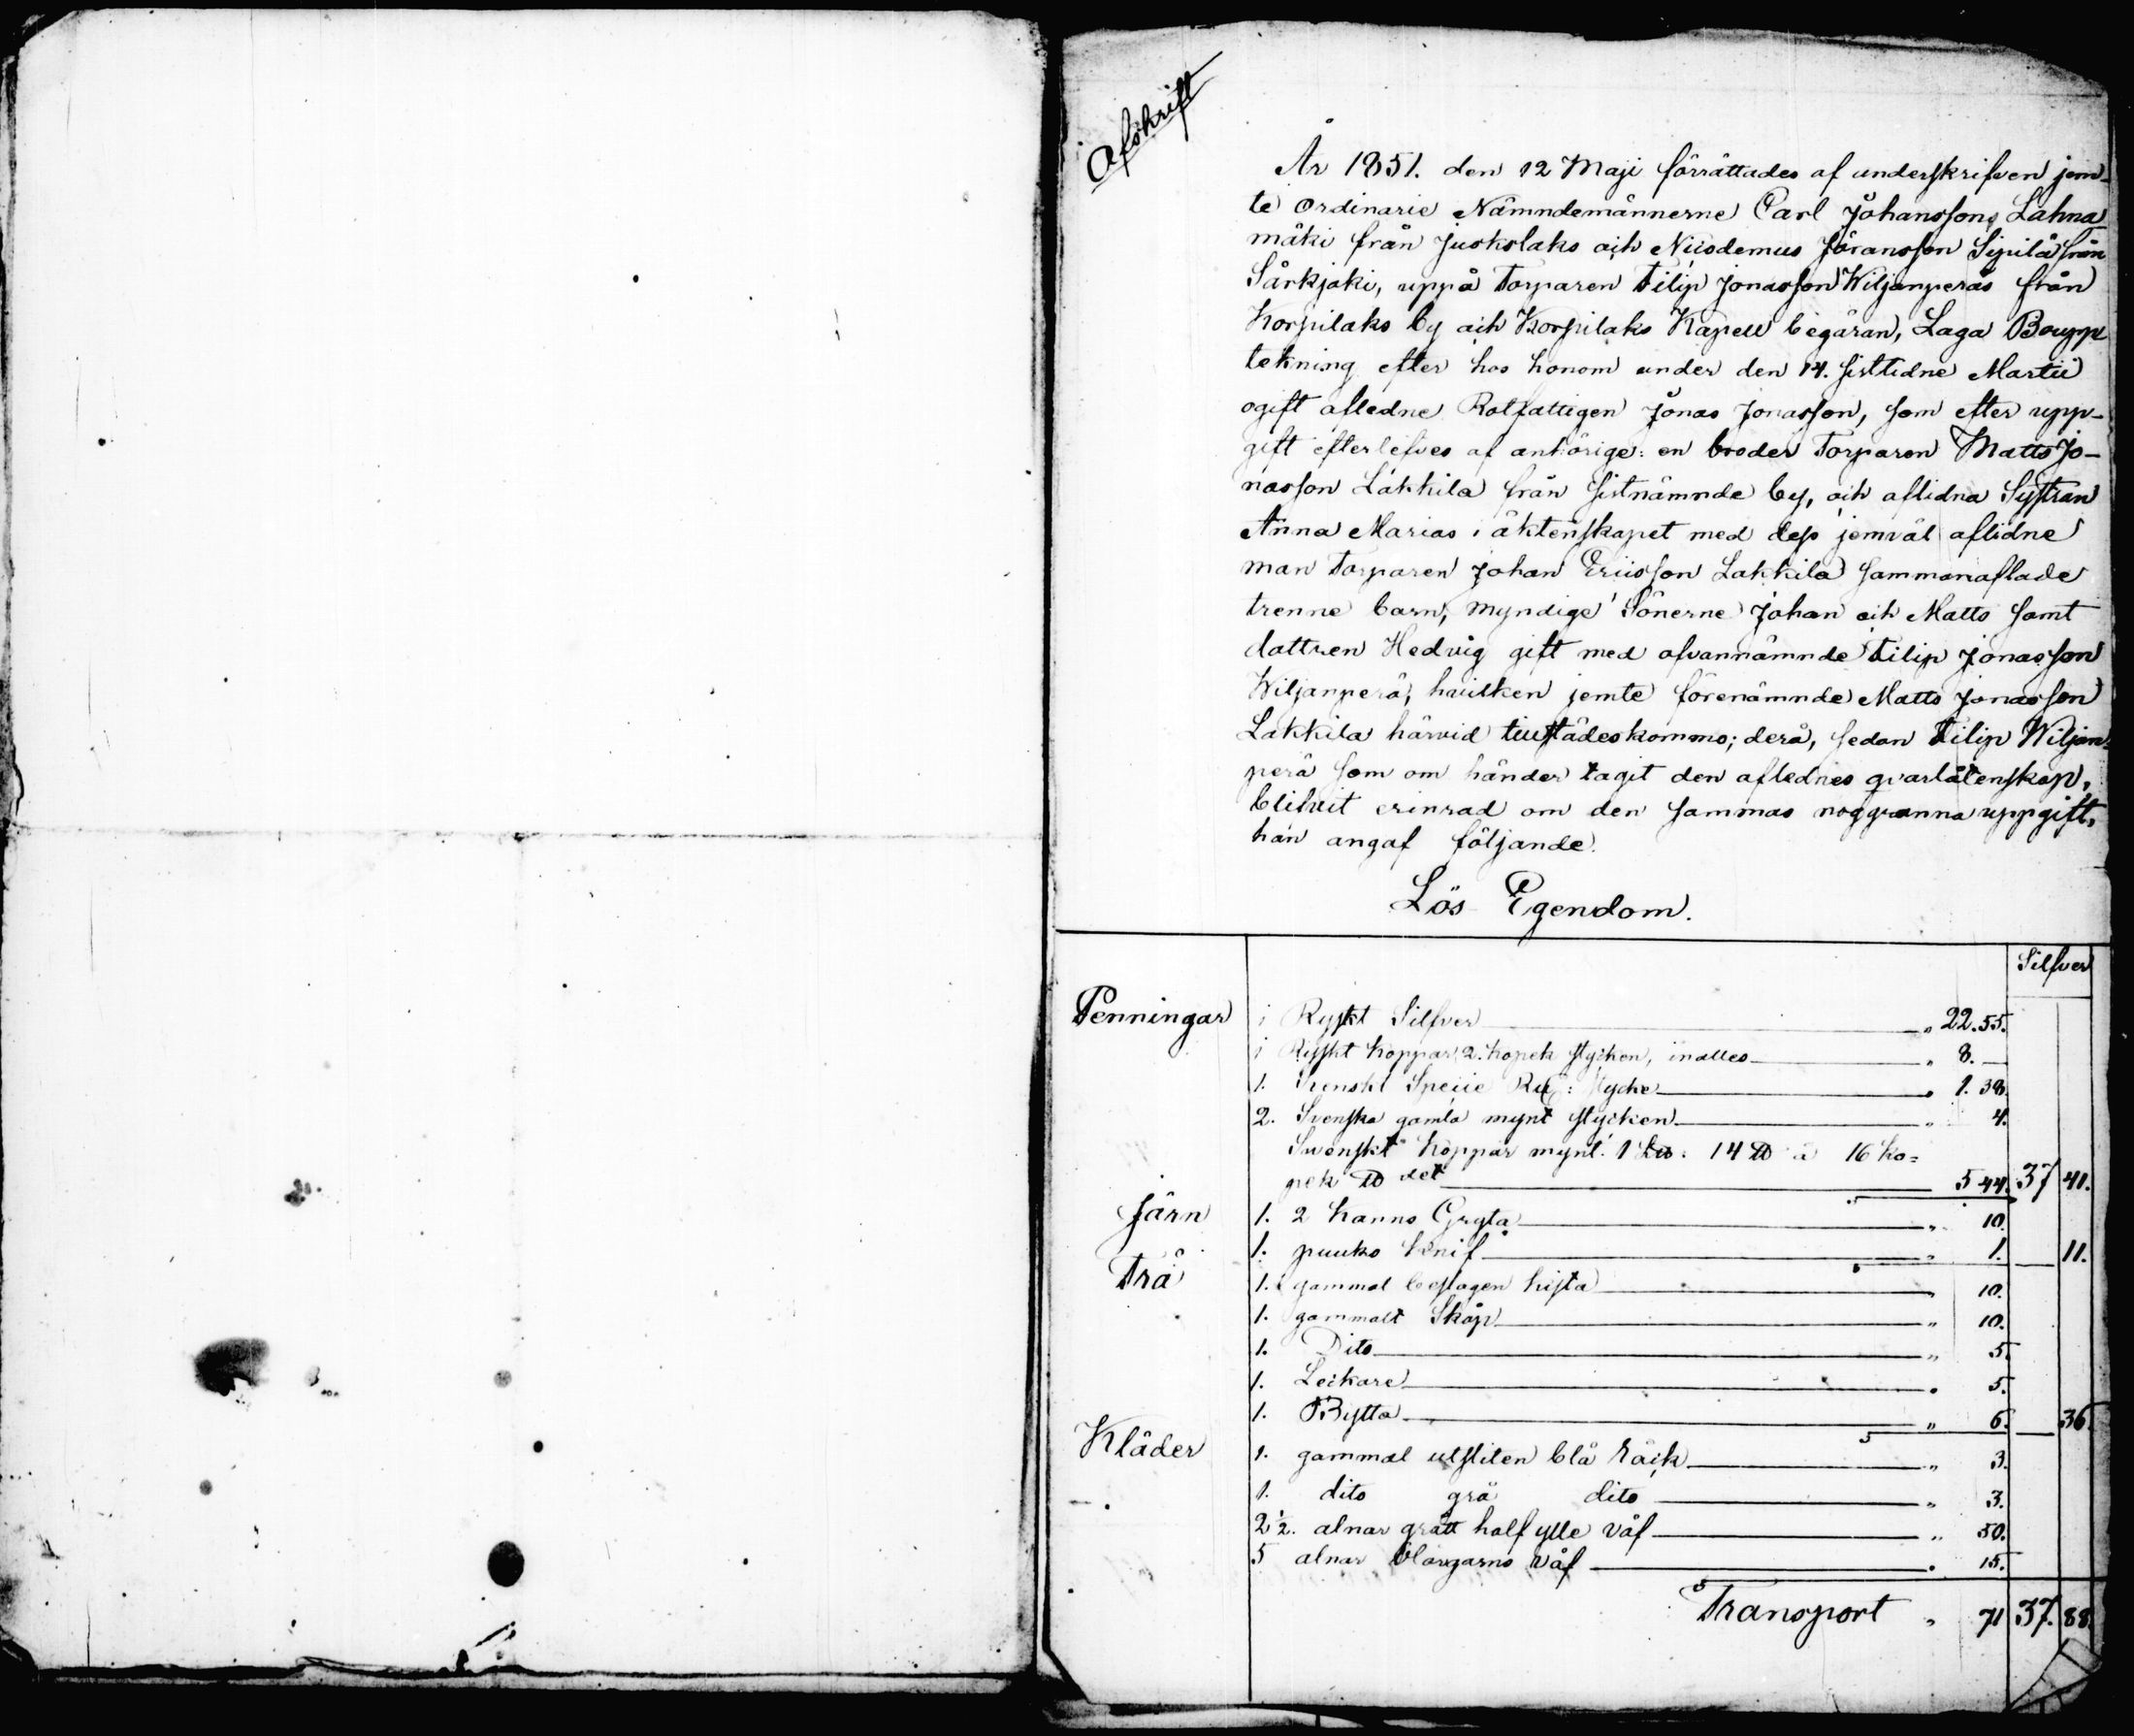 Afskrift
År 1851. den 12 Maji förrättades af underskrifven jem-
te Ordinarie Nämndemännerne Carl Johansson Lahna
mäki från Juokslaks och Nicodemus Göransson Sipilä från
Särkjoki, uppå Torparen Filip Jonasson Wiljanperäs från
Korpilaks by och Korpilaks Kapell begäran, Laga Boupp
tekning efter hos honom under den 14. sisttidne Martii
ogift afledne Rotfattigen Jonas Jonasson, som efter upp-
gift efterlefves af anhörige: en broder Torparen Matts Jo-
nasson Lakkila från sistnämnde by, och aflidna Systran
Anna Marias i äktenskapet med dess jemväl aflidne
man Torparen Johan Ericsson Lakkila sammanaflade
trenne barn, myndige Sönerne Johan och Matts samt
dottren Hedvig gift med ofvannämnde Filip Jonasson
Wiljanperä, hvilken jemte förenämnde Matts Jonasson
Lakkila härvid tillstädeskommo; derå, sedan Filip Wiljan-
perä som om händer tagit den aflednes qvarlåtenskap,
blifvit erinrad om den sammas noggranna uppgift,
han angaf följande.
Lös Egendom.
Silfver
Penningar i Ryskt Silfver " 22.55.
i Ryskt Koppar, 2. kopek stycken, inalles " 8.—
1. Svenskt Specie stycke " 1.38.
2. Svenska gamla mynt stycken " 4.
Svenskt Koppar mynt. 1 14 ℔ a 16 ko=
pek ℔ det 5 44. 37 41.
Järn 1. 2 kanns Gryta " 10.
1. puuko knif " 1. 11.
Trä 1. gammal beslagen kista " 10.
1. gammalt Skåp " 10.
1. Dito " 5.
1. Leckare " 5.
1. Bytta " 6. 36.
Kläder 1. gammal utsliten blå råck " 3.
1. dito grå dito " 3.
2 1/2. alnar grått half ylle våf " 50.
5 alnar blårgarns våf " 15.
Transport " 71 37. 88.